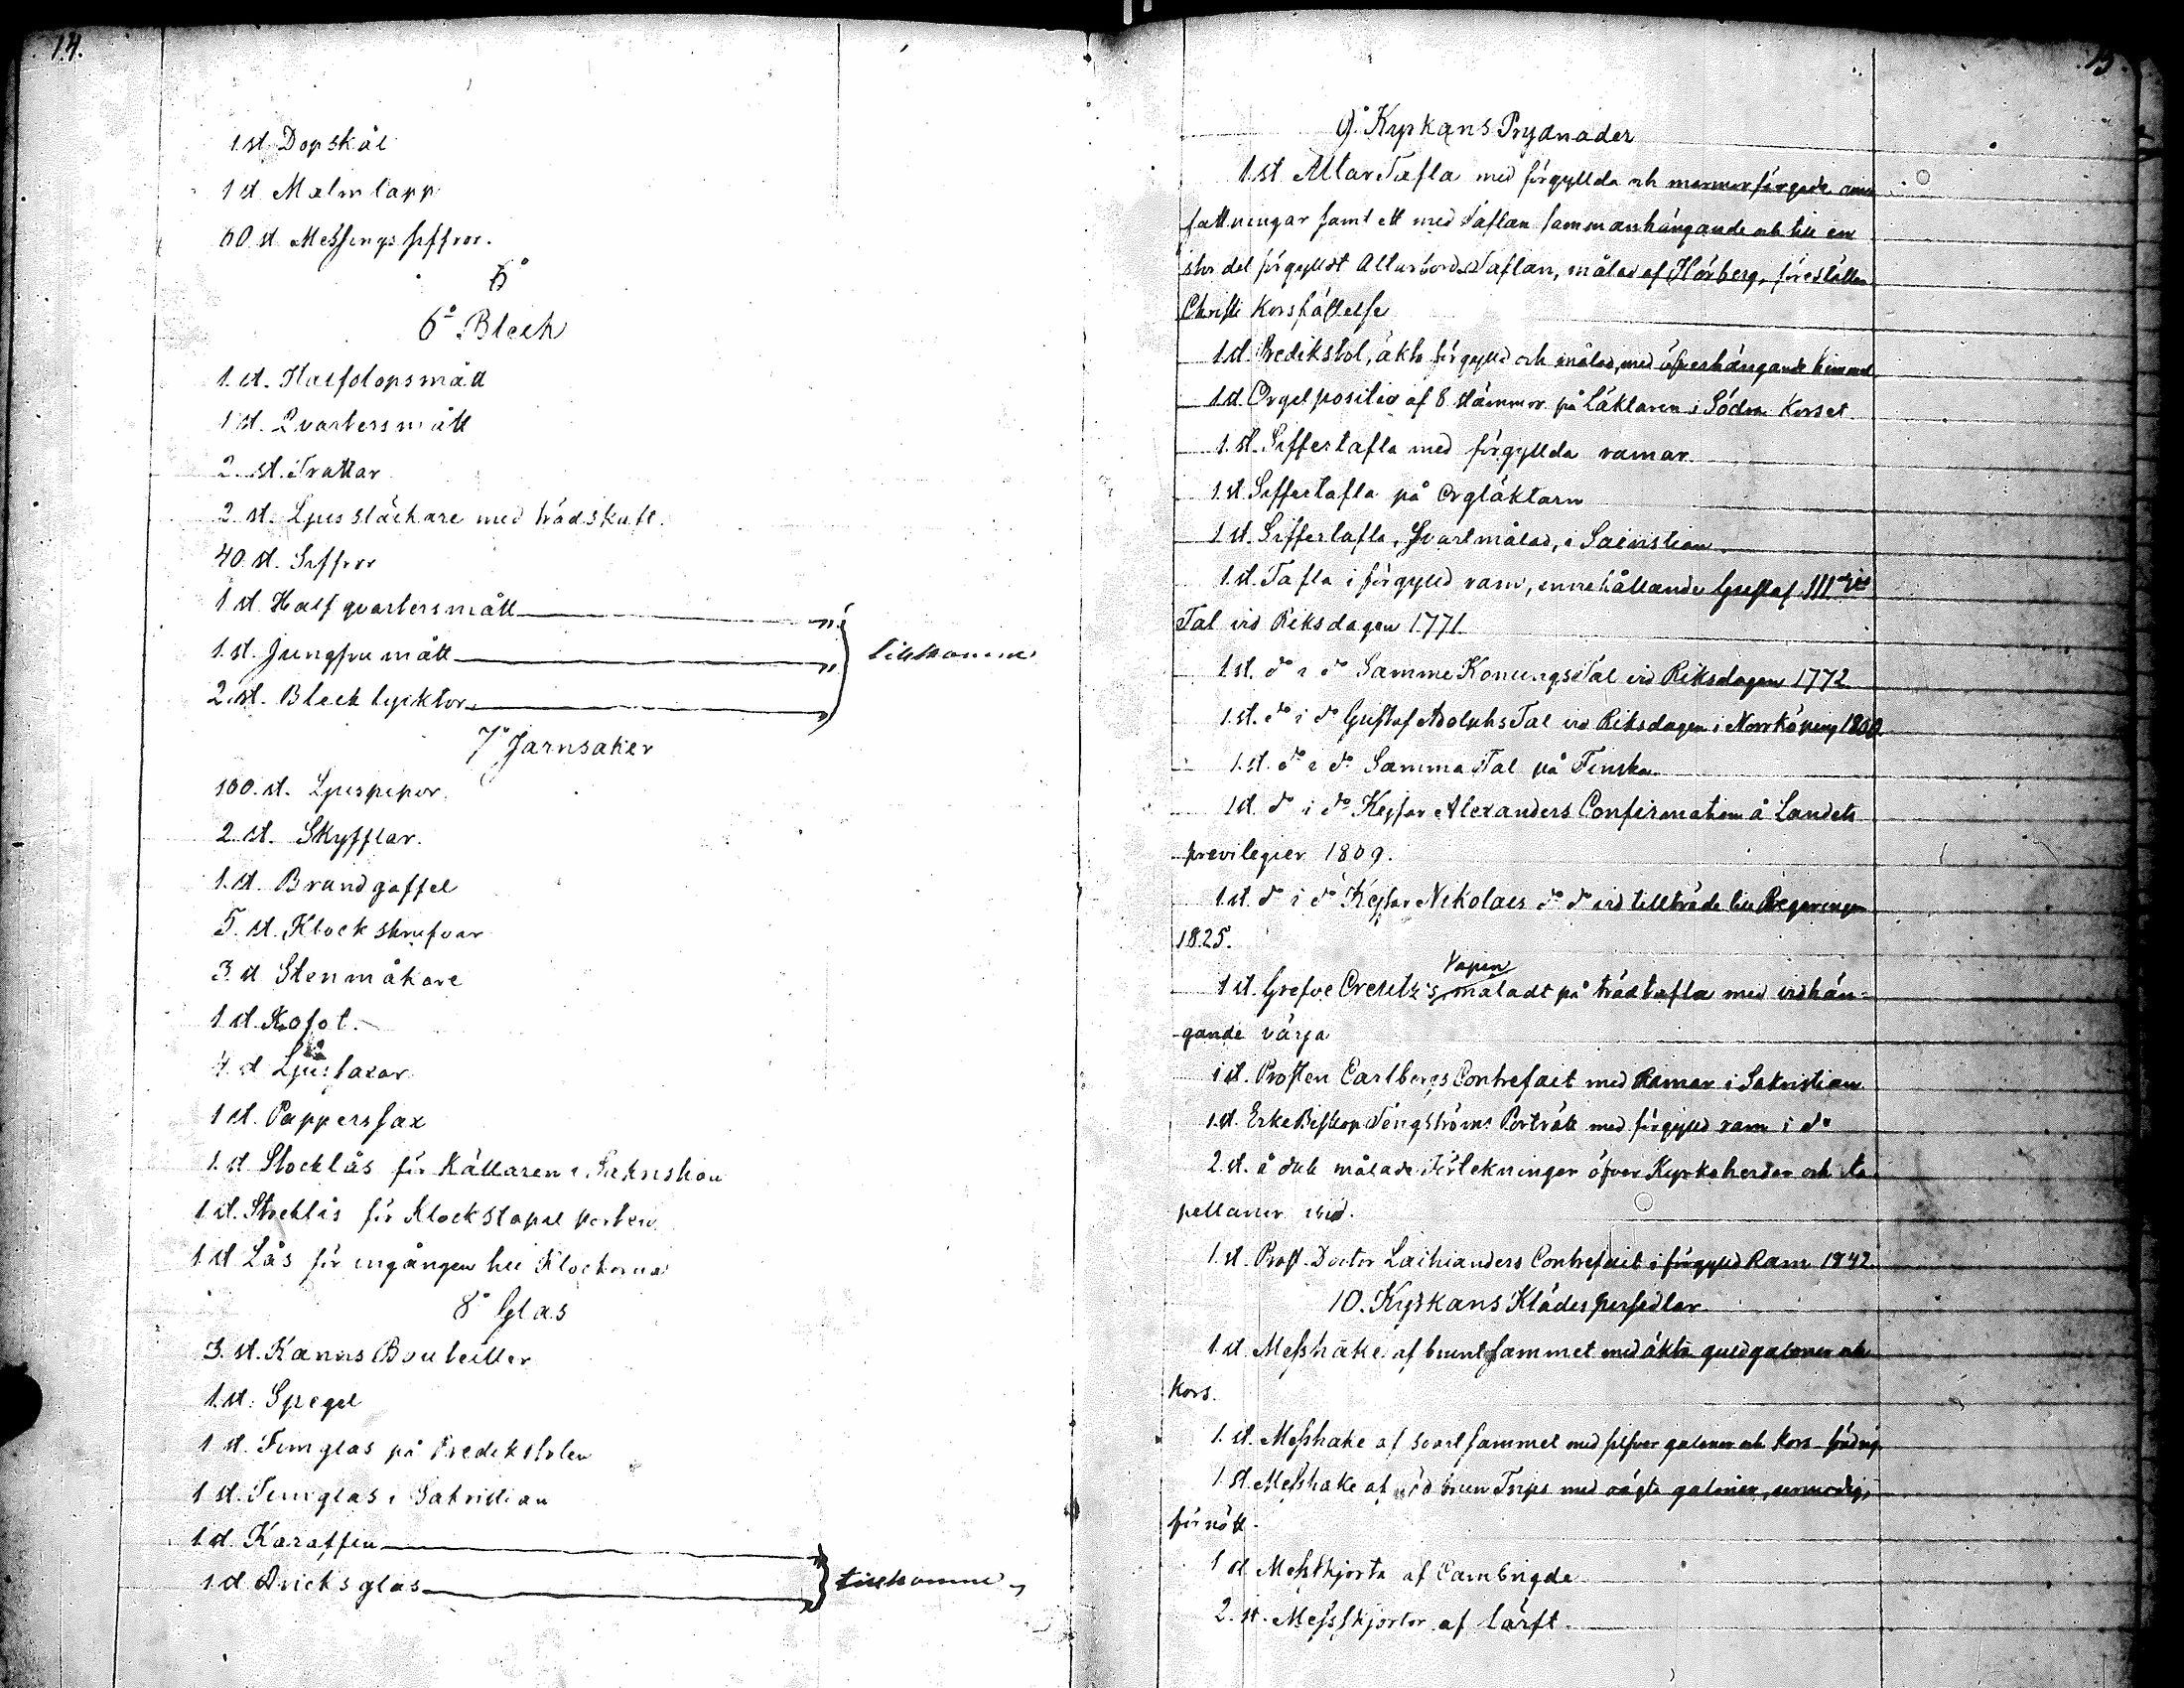 14.
1 st Dopskål
1 st Malmlapp
60 st Messings siffror.
6°
6° Blech
1. st. Halfstopsmått
1 st. Qvartersmått
2. st. Trattar
2. st. Ljussläckare med trädskaft.
40 st. Siffror
1 st Half qvartersmått
1. st. Jungfru mått
2. st. Bleck lycktor
tillkomne
7° Jarnsaker
100. st. Ljuspipor.
2. st. Skyfflar.
1. st. Brandgaffel
5. st. Klock skrufvar
3. st Stenmåkare
1 st Kofot.
4. st Ljussaxar
1 st. Papperssax
1. st Stocklås för Källaren i Sakristian
1. st. Stocklås för Klockstapel porten
1 st Lås för ingången till Klockorna
8° Glas
3. st. Kanns Bouteiller
1. st. Spegel
1 st. Timglas på Predikstolen
1 st. Timglas i Sakristian
1 st. Karaffin
1 st Dricksglas
tillkomne
15.
9° Kyrkans Prydnader
1. st Altar Tafla med förgyllda och marmorfärgade om-
fattningar samt ett med Taflan sammanhängande och till en
stor del förgyldt Altarbord. Taflan, målad af Hörberg, föreställer
Christi Korsfästelse
1 st. Predikstol, äkta förgylld och målad, med öfverhängande himmel
1 st. Orgelpositiv af 8 stämmor på Läktaren i Södra Korset
1. st. Siffertafla med förgyllda ramar
1. st Siffertafla på Orgläktarn
1 st. Siffertafla, Svartmålad, i Sacristian
1. st. Tafla i förgylld ram, innehållande Gustaf III dies
Tal vid Riksdagen 1771.
1 st. d° i d° Samme Konungs Tal vid Riksdagen 1772
1. st. d° i d° Gustaf Adolphs Tal vid Riksdagen i Norrköping 1800
1. st. d° i d° Samma Tal på Finska
1 st. d° i d° Kejsar Alexanders Confirmation å Landets
previlegier 1809.
1. st. d° i d° Kejsar Nikolais d° d° vid tillträde till Regeringen
1825.
1 st. Grefve Creutz's Vapen måladt på trädtafla med vidhän-
gande värja
1 st. Prosten Carlbergs Contrefait med Ramar i Sakristian
1. st. Erke Biskop Tengströms Porträtt med förgylld ram i d°
2. st. å duk målade Förtekningar öfver Kyrkoherdar och Ka-
pellaner ibid.
1. st. Prost. Doctor Laihianders Contrefait i förgylld Ram 1842.
10. Kyrkans Klädespersedlar
1 st Messhake af brunt sammet med äkta guldgaloner och
Kors.
1. st. Messhake af svart sammet med silfver galoner och Kors
1. st Messhake af röd brun Trips med oägta galoner,
förnött.
1 st Messkjorta af Cambrigde
2. st. Messkjortor af lärft.